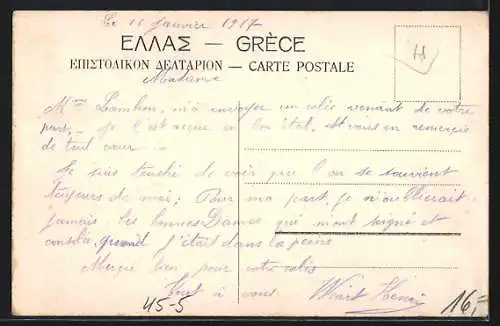 Le 11 Janvier 1917
ΕΛΛΑΣ — GRÈCE
ΕΠΙΣΤΟΛΙΚΟΝ ΔΕΛΤΑΡΙΟΝ — CARTE POSTALE
Madame
Mme Lambon, m'a envoyer un colis venant de votre
part, – Je l'ai reçue en bon état. Et vous en remercie
de tout cœur –
Je suis touché de voir que l'on se souvient
toujours de moi; Pour ma part, je n'oublierait
jamais les bonnes Dames qui m'ont soigné et
consolée, quand j'étais dans la peine
Merçie bien pour votre colis
Tout à vous. Henri
45-5
16,-